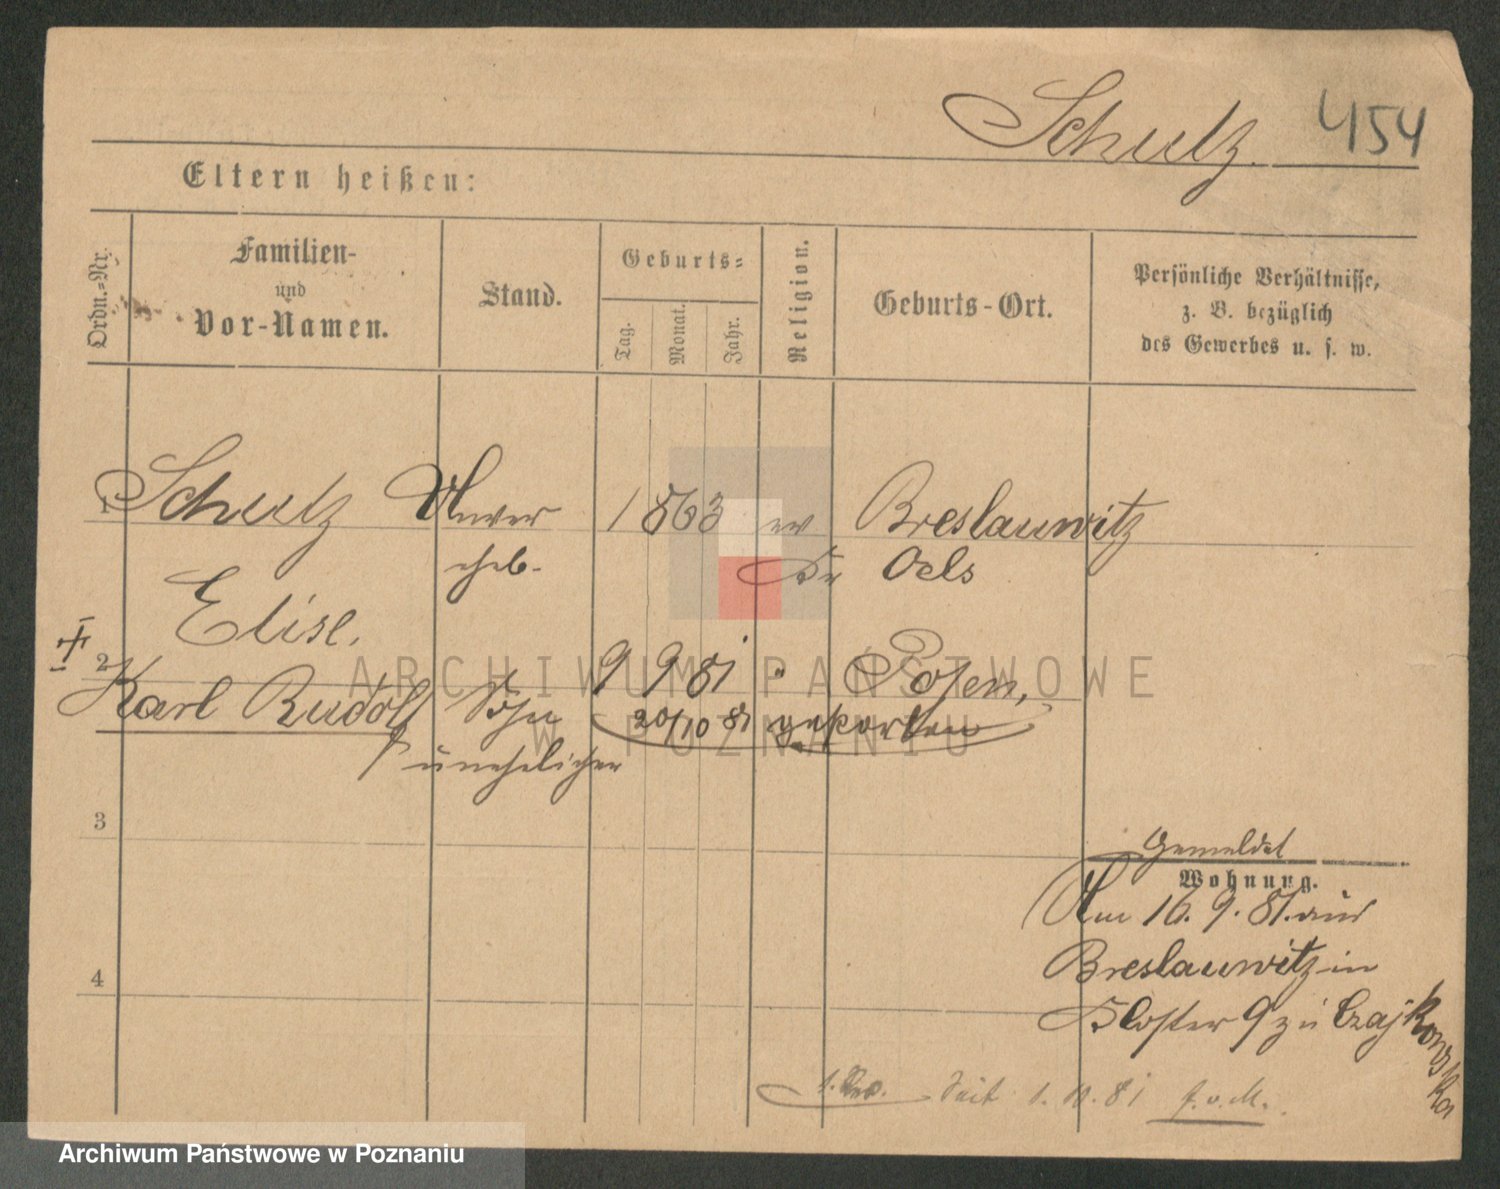 Schulz. 454
Eltern heißen:
Ordn.-Nr.
Familien-
und
Vor-Namen.
Stand.
Geburts-
Tag.
Monat.
Jahr.
Religion.
Geburts-Ort.
Persönliche Verhältnisse,
z. B. bezüglich
des Gewerbes u. s. w.
1 Schulz Unver 1863 ev Breslauwitz
ehel. Kr Oels
Elise.
2 Karl Rudolf Sohn 9 9 81 " Posen,
20/10 81 gestorben
unehelicher
3
Gemeldet
Wohnung.
Am 16. 9. 81. aus
Breslauwitz in
4
Kloster 9 zu Czajkowska
Seit 1. 10. 81 f. v. M.
ARCHIWUM PAŃSTWOWE
W POZNANIU
Archiwum Państwowe w Poznaniu